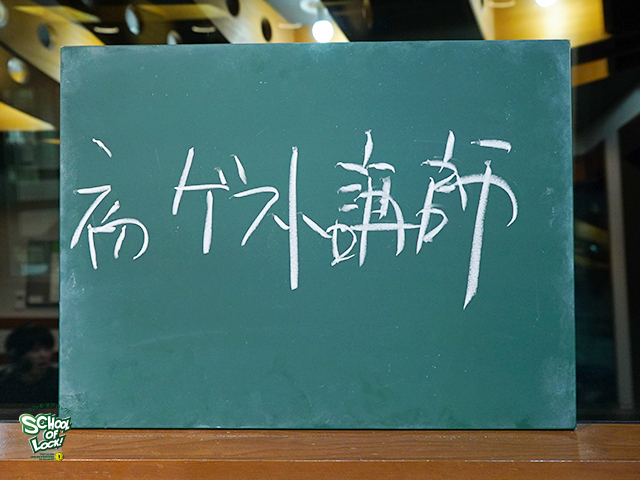 初ゲスト講師
SCHOOL
OF
LOCK!